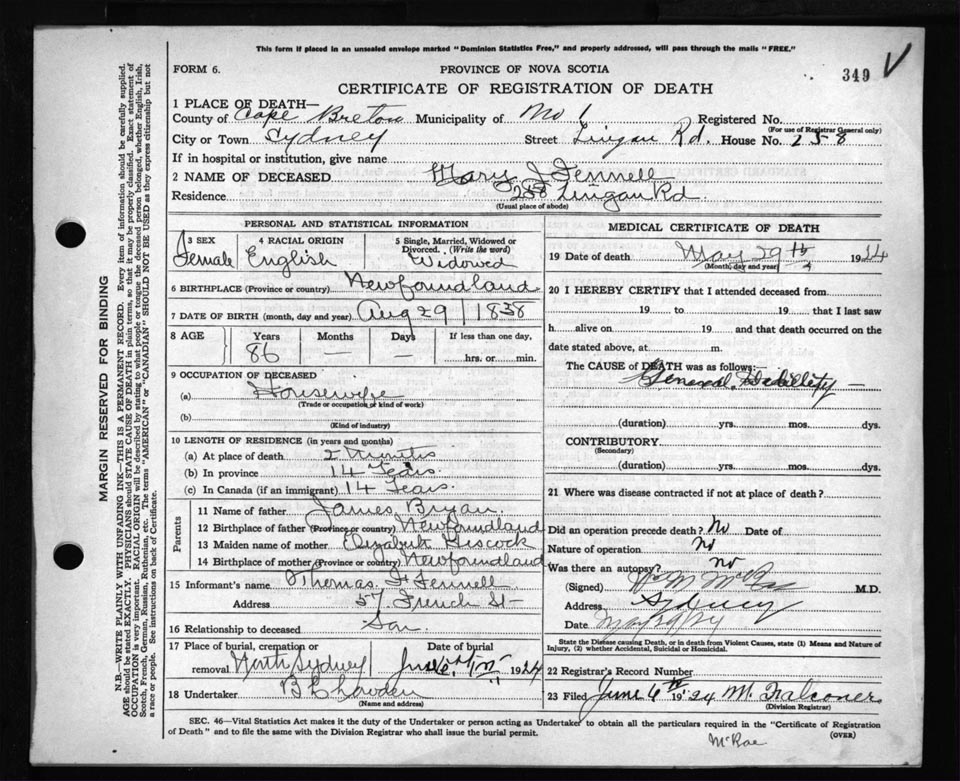 This form if placed in an unsealed envelope marked "Dominion Statistics Free," and properly addressed, will pass through the mails "FREE."
FORM 6.
PROVINCE OF NOVA SCOTIA
349 V
CERTIFICATE OF REGISTRATION OF DEATH
1 PLACE OF DEATH—
County of Cape Breton Municipality of No 1 Registered No.
(For use of Registrar General only)
City or Town Sydney Street Lingan Rd. House No. 258
If in hospital or institution, give name
2 NAME OF DECEASED Mary J Fennell
Residence 258 Lingan Rd
(Usual place of abode)
PERSONAL AND STATISTICAL INFORMATION
3 SEX Female
4 RACIAL ORIGIN English
5 Single, Married, Widowed or Divorced. (Write the word) Widowed
6 BIRTHPLACE (Province or country) Newfoundland
7 DATE OF BIRTH (month, day and year) Aug 29 1838
8 AGE Years Months Days If less than one day,
86 — — hrs. or min.
9 OCCUPATION OF DECEASED
(a) Housewife
(Trade or occupation or kind of work)
(b)
(Kind of industry)
10 LENGTH OF RESIDENCE (in years and months)
(a) At place of death 2 Months
(b) In province 14 Years.
(c) In Canada (if an immigrant) 14 Years.
Parents
11 Name of father James Bryan
12 Birthplace of father (Province or country) Newfoundland
13 Maiden name of mother Elizabeth Hiscock
14 Birthplace of mother (Province or country) Newfoundland
15 Informant's name Thomas Fennell
Address 57 French St
16 Relationship to deceased Son
17 Place of burial, cremation or removal North Sydney
Date of burial June 1924
18 Undertaker
(Name and address)
MEDICAL CERTIFICATE OF DEATH
19 Date of death May 29th 1924
(Month, day and year)
20 I HEREBY CERTIFY that I attended deceased from
19 to 19 that I last saw
h alive on 19 and that death occurred on the
date stated above, at m.
The CAUSE of DEATH was as follows:—
General Debility —
(duration) yrs. mos. dys.
CONTRIBUTORY
(Secondary)
(duration) yrs. mos. dys.
21 Where was disease contracted if not at place of death?
Did an operation precede death? No Date of
Nature of operation No
Was there an autopsy? no
(Signed) M.D.
Address Sydney
Date
State the Disease causing Death, or in death from Violent Causes, state (1) Means and Nature of Injury, (2) whether Accidental, Suicidal or Homicidal.
22 Registrar's Record Number
23 Filed June 6th 1924 M. Falconer
(Division Registrar)
SEC. 46—Vital Statistics Act makes it the duty of the Undertaker or person acting as Undertaker to obtain all the particulars required in the "Certificate of Registration
of Death" and to file the same with the Division Registrar who shall issue the burial permit.
(OVER)
McRae
MARGIN RESERVED FOR BINDING
N.B.—WRITE PLAINLY WITH UNFADING INK—THIS IS A PERMANENT RECORD. Every item of information should be carefully supplied.
AGE should be stated EXACTLY. PHYSICIANS should STATE CAUSE OF DEATH in plain terms, so that it may be properly classified. Exact statement of
OCCUPATION is very important. RACIAL ORIGIN will be described by stating to what people or tongue the deceased person belonged, whether English, Irish,
Scotch, French, German, Russian, Ruthenian, etc. The terms "AMERICAN" or "CANADIAN" SHOULD NOT BE USED as they express citizenship but not
a race or people. See instructions on back of Certificate.